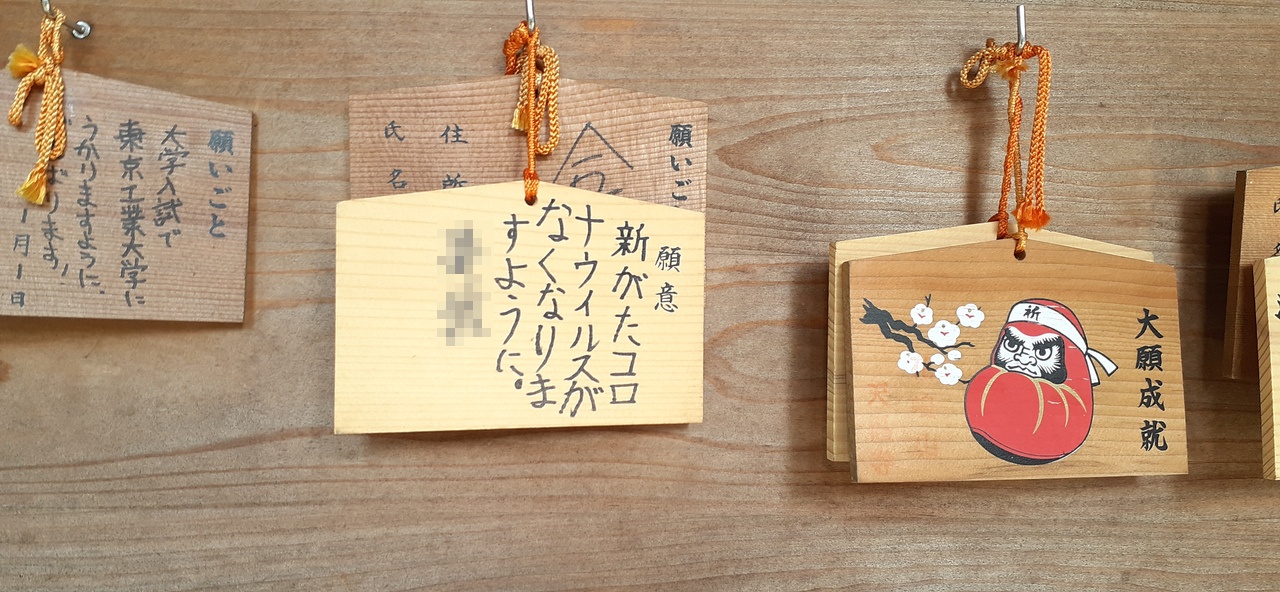 願いごと
大学入試で
東京工業大学に
うかりますように。
ばります!
1月1日
願いご
住所
氏名
願意
新がたコロ
ナウィルスが
なくなりま
すように。
大願成就
祈